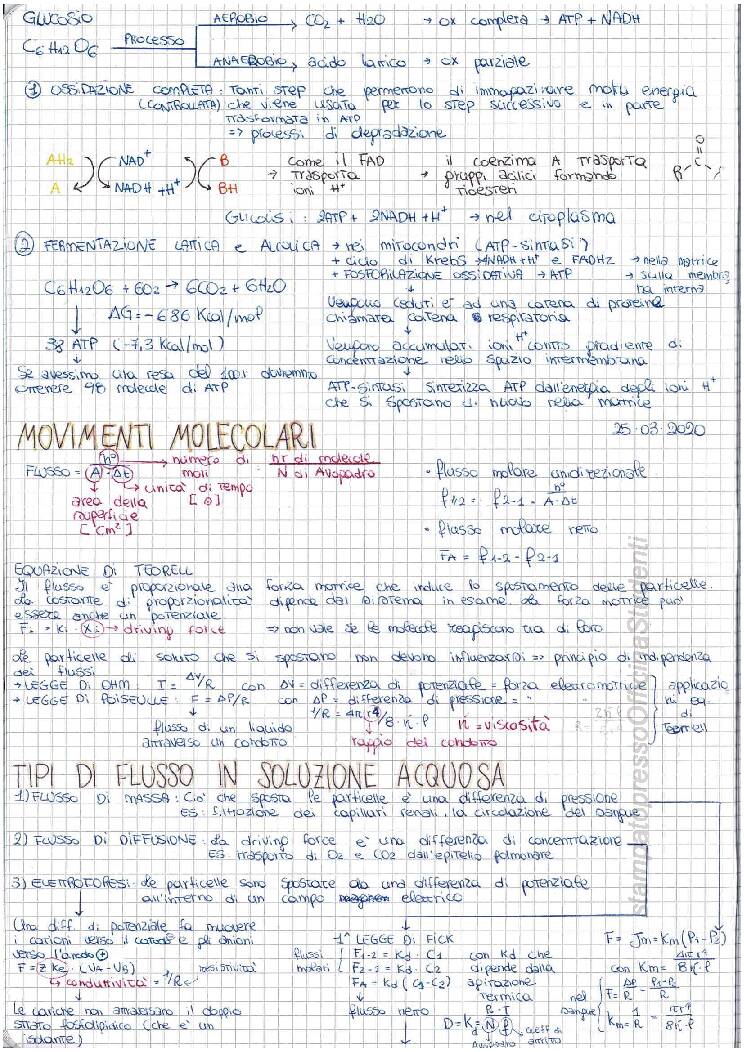 GLUCOSIO
C6H12O6
PROCESSO
AEROBIO CO2 + H2O → ox completa → ATP + NADH
ANAEROBIO acido lattico → ox parziale
1 OSSIDAZIONE COMPLETA: Tanti step che permettono di immagazzinare molta energia
(CONTROLLATA) che viene usata per lo step successivo e in parte
trasformata in ATP
=> processi di degradazione
AH2 NAD+ B
A NADH + H+ BH
Come il FAD
→ trasporta
ioni H+
il coenzima A trasporta
→ gruppi acilici formando
tioesteri
O
R C
Glicolisi: 2ATP + 2NADH + H+ → nel citoplasma
2 FERMENTAZIONE LATTICA e ALCOLICA → nei mitocondri (ATP-sintasi)
+ ciclo di Krebs → NADH+H+ e FADH2 → nella matrice
+ FOSFORILAZIONE OSSIDATIVA → ATP → sulla membrana
interna
C6H12O6 + 6O2 → 6CO2 + 6H2O
ΔG = -686 Kcal/mol
38 ATP (-7,3 Kcal/mol)
Se avessimo una resa del 100% dovremmo
ottenere 98 molecole di ATP
Vengono ceduti e- ad una catena di proteine
chiamata catena respiratoria
Vengono accumulati ioni H+ contro gradiente di
concentrazione nello spazio intermembrana
ATP-sintasi sintetizza ATP dall'energia degli ioni H+
che si spostano di nuovo nella matrice
MOVIMENTI MOLECOLARI
25-03-2020
FLUSSO = n° / A · Δt
numero di moli
nr di molecole
N di Avogadro
unità di tempo
[s]
area della
superficie
[cm2]
• flusso molare unidirezionale
f1-2 = f2-1 = n° / A·Δt
• flusso molare netto
FA = f1-2 - f2-1
EQUAZIONE DI TEORELL
Il flusso è proporzionale alla forza motrice che induce lo spostamento delle particelle.
La costante di proporzionalità dipende dal sistema in esame. La forza motrice può
essere anche un potenziale
Fi = Ki · Xi → driving force => non vale se le molecole reagiscono tra di loro
Le particelle di soluto che si spostano non devono influenzarsi => principio di indipendenza
dei flussi
→ LEGGE DI OHM: I = ΔV/R con ΔV = differenza di potenziale = forza elettromotrice
→ LEGGE DI POISEULLE: F = ΔP/R con ΔP = differenza di pressione = "
applicazio
ni eq.
di
Teorell
flusso di un liquido
attraverso un condotto
raggio del condotto
= viscosità
TIPI DI FLUSSO IN SOLUZIONE ACQUOSA
1) FLUSSO DI MASSA: Ciò che sposta le particelle è una differenza di pressione
ES: filtrazione dei capillari renali, la circolazione del sangue
2) FLUSSO DI DIFFUSIONE: La driving force è una differenza di concentrazione
ES: trasporto di O2 e CO2 dall'epitelio polmonare
3) ELETTROFORESI: Le particelle sono spostate da una differenza di potenziale
all'interno di un campo elettrico
Una diff. di potenziale fa muovere
i cationi verso il catodo e gli anioni
verso l'anodo +
F = Z Ke (VA - VB)
conduttività = 1/Re
resistività
Le cariche non attraversano il doppio
strato fosfolipidico (che è un
isolante)
1^ LEGGE DI FICK
flussi
molari
F1-2 = Kd · C1
F2-1 = Kd · C2
FA = Kd (C1-C2)
con Kd che
dipende dalla
agitazione
termica
flusso netto
Avogadro
coeff di
attrito
F = Jm = Km (P1-P2)
con Km =
nel
sangue
stampatopressoOfficinaStudenti